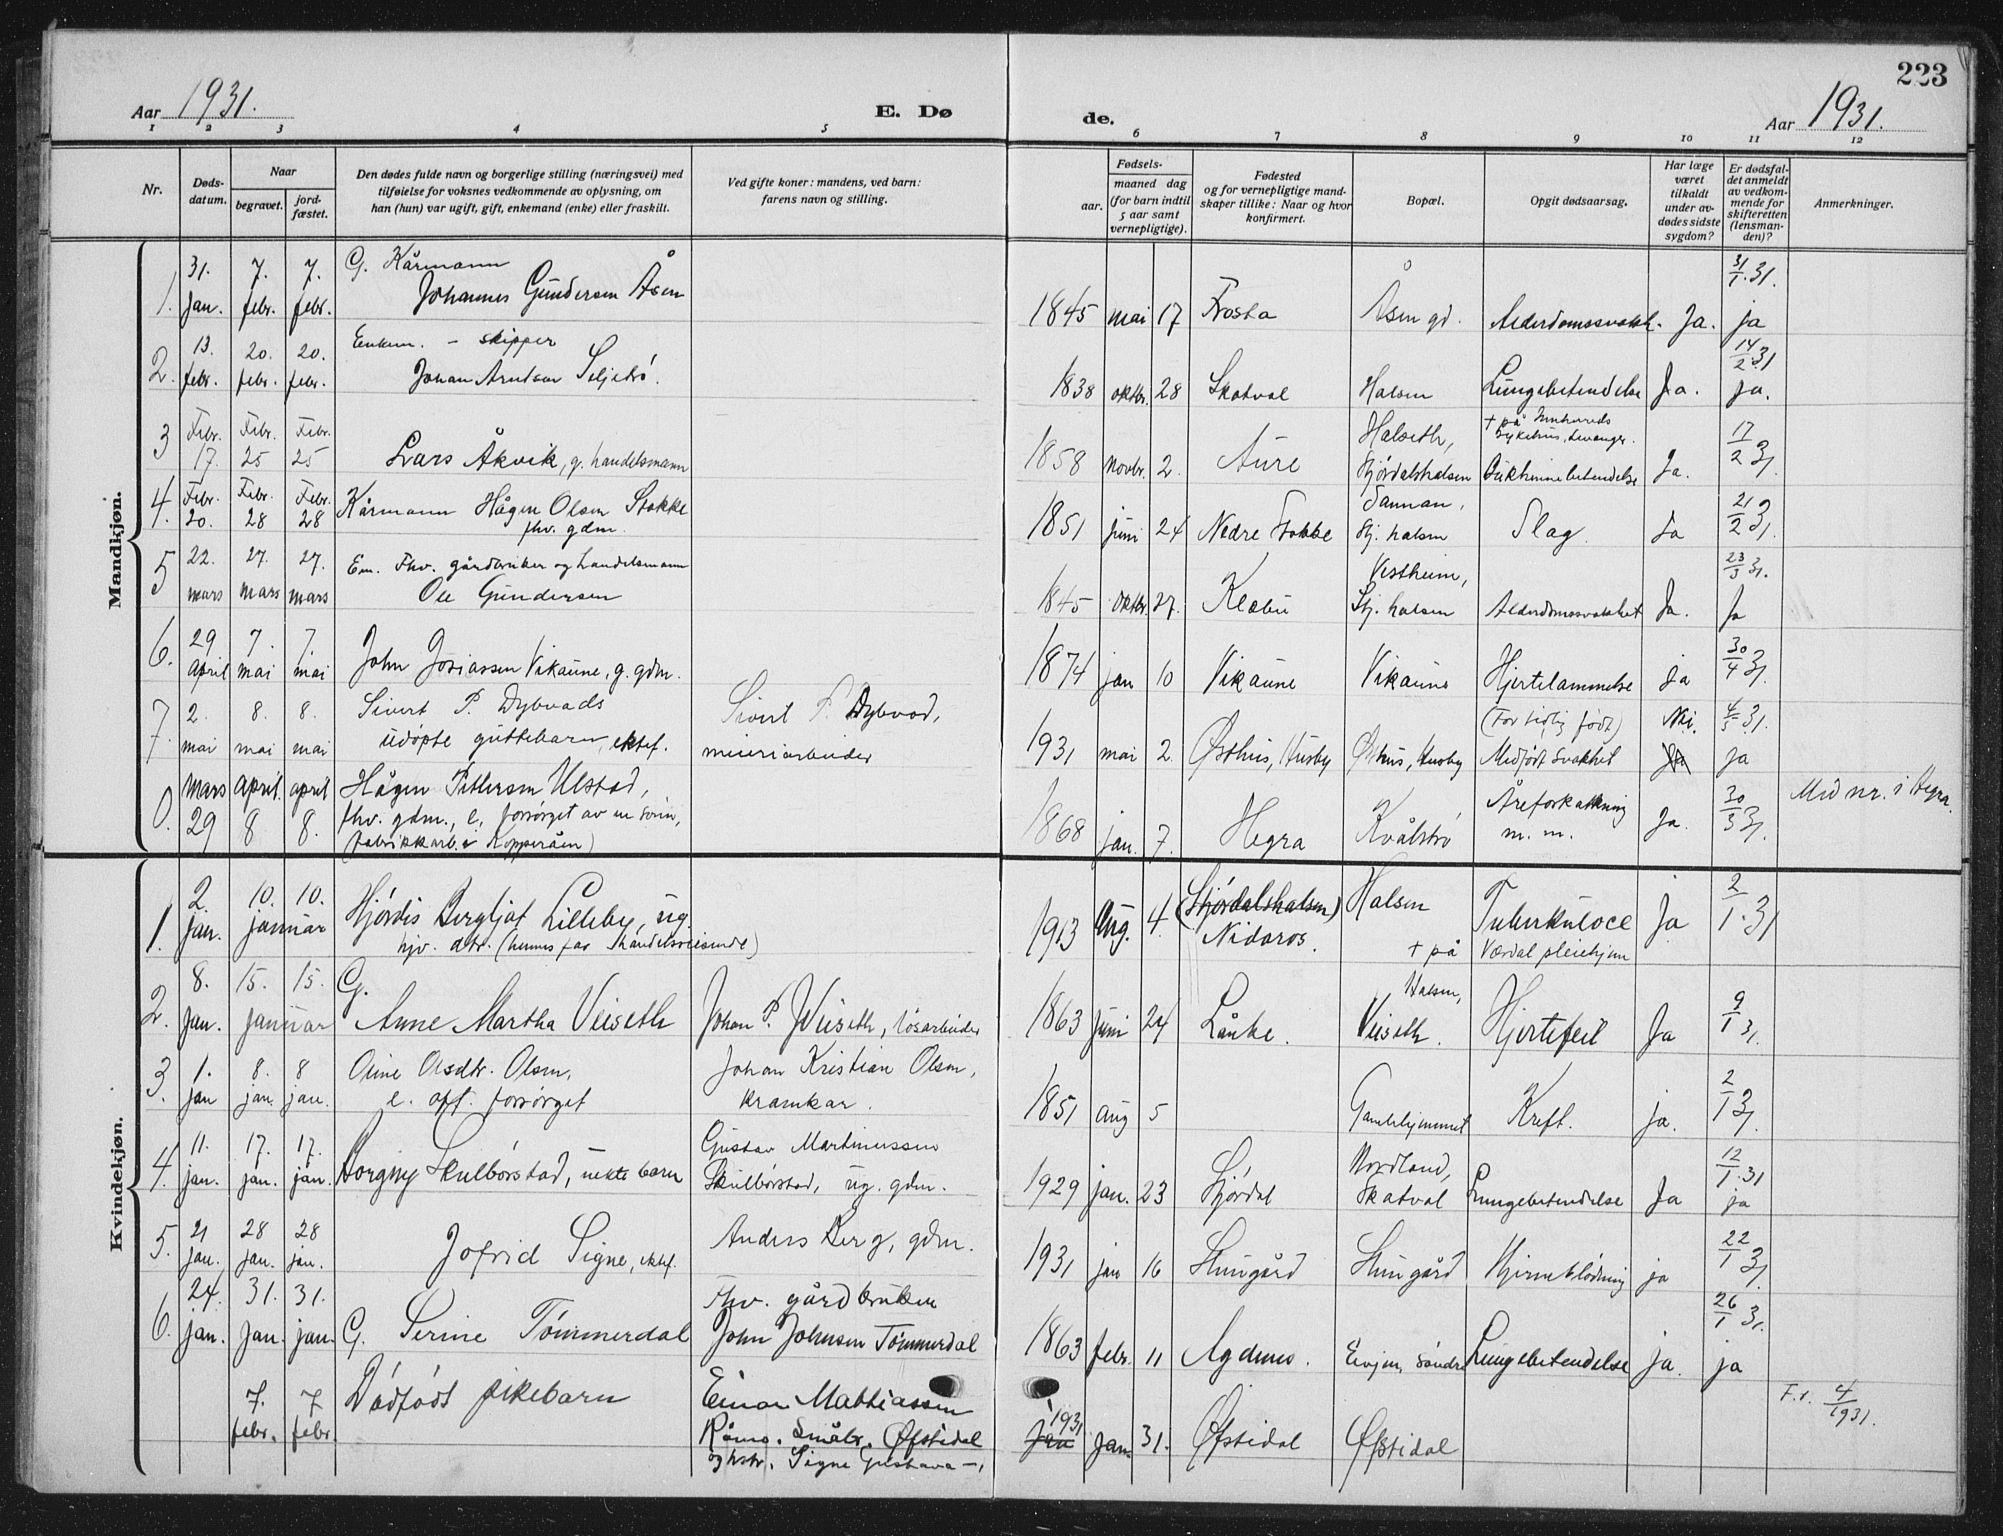 223
Aar 1931.
E. Dø
de.
Aar 1931.
1 2 3 4 5 6 7 8 9 10 11 12
Nr.
Døds-
datum.
Naar
begravet.
jord-
fæstet.
Den dødes fulde navn og borgerlige stilling (næringsvei) med
tilføielse for voksnes vedkommende av oplysning, om
han (hun) var ugift, gift, enkemand (enke) eller fraskilt.
Ved gifte koner: mandens, ved barn:
farens navn og stilling.
Fødsels-
aar.
maaned dag
(for barn indtil
5 aar samt
vernepligtige).
Fødested
og for vernepligtige mand-
skaper tillike: Naar og hvor
konfirmert.
Bopæl.
Opgit dødsaarsag.
Har læge
været
tilkaldt
under av-
dødes sidste
sygdom?
Er dødsfal-
det anmeldt
av vedkom-
mende for
skifteretten
(lensman-
den)?
Anmerkninger.
Mandkjøn.
1. 31. jan. 7. febr. 7. febr.
G. Kårmann
Johannes Gundersen Åsen
1845 mai 17 Frosta Åsen gd. Alderdomssvakh. Ja. 31/1.31. ja
2. 13. febr. 20. febr. 20. febr.
Enkem. – skipper
Johan Arntsen Seljebø.
1838 oktbr. 28 Skatval Halsen Lungebetendelse Ja. 14/2.31 ja.
3 Febr. 17. Febr. 25 Febr. 25
Lars Åkvik, g. handelsmann
1858 novbr. 2. Aure
Halseth,
Stjørdalshalsen
+ på Innherreds
Sykehus, Levanger.
Bukhinnebetendelse Ja. 17/2 31.
4. Febr. 20. Febr. 28 Febr. 28
Kårmann Hågen Olsen Stokke
fhv. gdm.
1851 juni 24 Nedre Stokke
Sannan,
Stj. halsen
Slag. Ja 21/2 31.
5 22. mars 27. mars 27. mars
Em. Fhv. gårdbruker og handelsmann
Ole Gundersen
1845 oktbr. 27. Klæbu
Vestheim,
Stj. halsen
Alderdomssvakhet Ja. 23/3 31. Ja
6. 29 april 7. mai 7. mai
John Josiassen Vikaune, g. gdm.
1874 jan 10 Vikaune Vikaune Hjertelammelse ja 30/4 31.
7. 2. mai 8. mai 8. mai
Sivert P. Dybvads
udøpte guttebarn, ektef.
Sivert P. Dybvad,
meieriarbeider
1931 mai 2. Østhus, Husby Østhus, Husby
(For tidlig født)
Medfødt svakhet
Nei. ja 4/5 31. ja
0. mars 29 april. 8 april 8.
Hågen Pettersen Ulstad,
fhv. gdm., e, forsørget av en sønn,
fabrikkarb. i Kopperåen)
1868 jan. 7. Hegra Kvålsbø
Åreforkalkning
m. m.
Ja. 30/3 31. Med nr. i Hegra.
Kvindekjøn.
1. 2. jan. 10. 10. januar
Hjørdis Bergljot Lilleby, ug.
hjv. dtr. (hennes far handelsreisende)
1913 Aug. 4.
(Stjørdalshalsen)
Nidaros.
Halsen
+ på
Tuberkuloce
Værdal pleiehjem
Ja 2/1.31
2. 8. jan. 15. 15. januar
G.
Anne Martha Veiseth
Johan P. Veiseth, løsarbeider
1863 Juni 24 Lånke.
Halsen,
Veiseth.
Hjertefeil Ja 9/1 31.
3. 1. jan 8. jan. 8 jan.
Oline Olsdtr. Olsen,
e. off. forsørget
Johan Kristian Olsen,
kramkar.
1851 aug 5 Gamlehjemmet Kreft. ja. 2/1 31.
4. 11. jan. 17. jan. 17. jan.
Borgny Skulbørstad, uekte barn
Gustav Martinussen
Skulbørstad, ug. gdm.
1929 jan. 23 Stjørdal
Nordland,
Skatval
Lungebetendelse Ja 12/1.31 ja
5. 21 jan. 28 jan. 28 jan.
Jofrid Signe, ektef.
Anders Berg, gdm.
1931 jan 16 Hungård Hungård Hjerneblødning ja 22/1 31.
6. 24. jan. 31. jan. 31. jan.
G. Serine Tømmerdal
Fhv. gårdbruker
John Johnsen Tømmerdal
1863 febr. 11 Agdenes. Eivjen, Søndre Lungebetendelse ja. 26/1 31. ja
7. febr. 7 febr.
Dødfødt pikebarn
Einar Mathiassen
Råmo, Småbr. Øfstidal
og hstr. Signe Gustava –,
1931 Jan 31. Øfstidal Øfstidal
F.v. 4/1931.